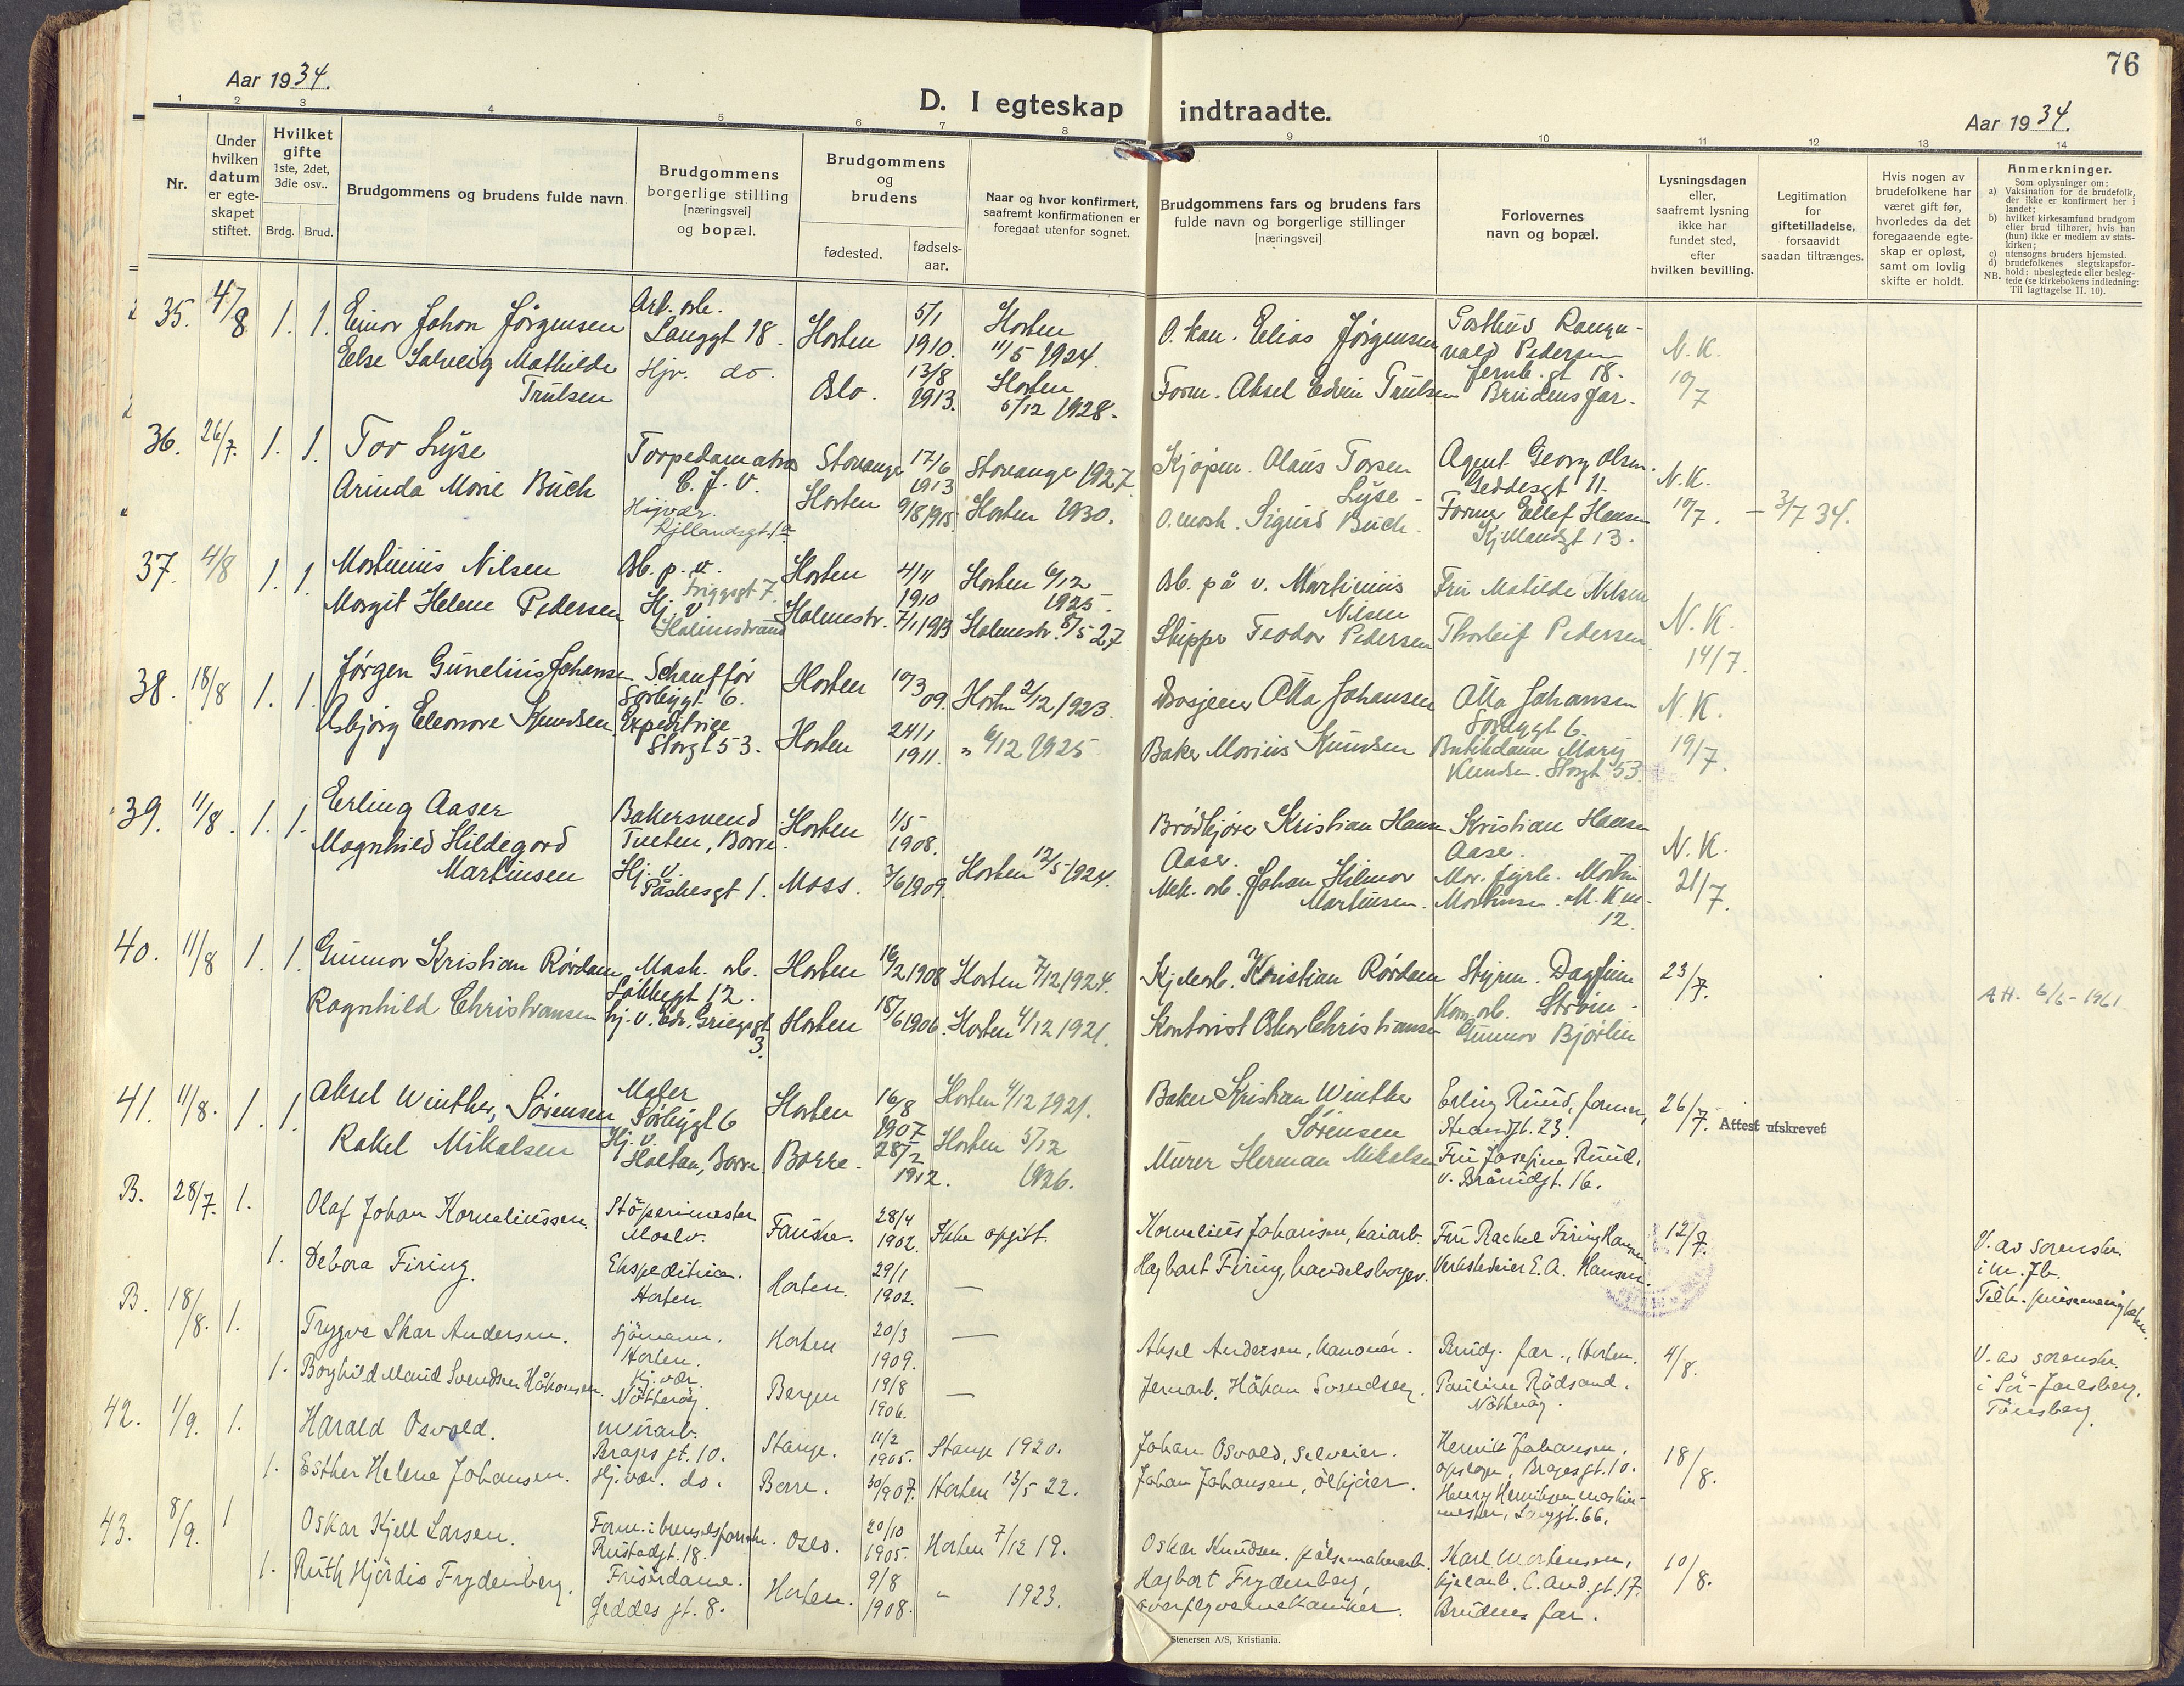 76
Aar 1934.
D. I egteskap indtraadte.
Aar 1934.
1 2 3 4 5 6 7 8 9 10 11 12 13 14
Nr.
Under hvilken datum er egte-skapet stiftet.
Hvilket gifte 1ste, 2det, 3die osv..
Brdg. Brud.
Brudgommens og brudens fulde navn.
Brudgommens borgerlige stilling [næringsvei] og bopæl.
Brudgommens og brudens
fødested.
fødsels-aar.
Naar og hvor konfirmert, saafremt konfirmationen er foregaat utenfor sognet.
Brudgommens fars og brudens fars fulde navn og borgerlige stillinger [næringsvei]
Forlovernes navn og bopæl.
Lysningsdagen eller, saafremt lysning ikke har fundet sted, efter hvilken bevilling.
Legitimation for giftetilladelse, forsaavidt saadan tiltrænges.
Hvis nogen av brudefolkene har været gift før, hvorledes da det foregaaende egte-skap er opløst, samt om lovlig skifte er holdt.
Anmerkninger.
Som oplysninger om:
a) Vaksination for de brudefolk, der ikke er konfirmert her i landet;
b) hvilket kirkesamfund brudgom eller brud tilhører, hvis han (hun) ikke er medlem av stats-kirken;
c) utensogns bruders hjemsted.
d) brudefolkenes slegtskapsfor-hold: ubeslegtede eller besleg-tede (se kirkebokens indledning: Til iagttagelse II. 10).
NB.
35. 4/8 1. 1. Einar Johan Jörgensen
Arb. arb. Langgt 18. Horten 5/1 1910. Horten 11/5 1924.
O. kan. Elias Jörgensen
Pedersen Jernb. gt 18. N. K. 10/7
Else Solveig Mathilde Trulsen
Hjv. do. Oslo. 13/8 1913. Horten 5/12 1928.
Form. Aksel Edvin Trulsen Brudens far.
36. 26/7. 1. 1. Tor Lyse
Stavanger 17/6 1913 Stavanger 1927.
Kjøpm. Olaus Torsen Lyse
Agent Georg Olsen. Geddesgt 11. N. K. 10/7. - 3/7 34.
Arinda Marie Buch
Hjvær. Kjellandsgt. 1a Horten 9/8 1915 Horten 1930.
O. mask. Sigurd Buch.
Former Ellef Hansen Kjellandsgt 13.
37. 4/8 1. 1. Martinius Nilsen
Arb. p. v. Horten 4/11 1910 Horten 6/12 1925.
Arb. på v. Martinius Nilsen Fru Matilde Nilsen N. K. 14/7.
Margit Helene Pedersen
Hj. v Holmestrand Holmestr. 7/1 1913 Holmestr. 8/5 27
Skipper Teodor Pedersen Thorleif Pedersen.
38. 18/8 1. 1. Jørgen Gunelius Johansen
Schauffør Sørbygt 6. Horten 10/3 09. Horten 2/12 1923.
Drosjeeier Otto Johansen Otto Johansen Sørbygt 6. N. K. 19/7.
Asbjørg Eleonore Knudsen
Expeditrice Storgt 53. Horten 24/1 1911. " 6/12 1925
Baker Marius Knudsen Butikdame Marij Knudsen. Storgt 53.
39. 11/8. 1. 1. Erling Aaser
Bakersvend Tueten, Borre. Horten 1/5 1908.
Brödkjører Kristian Hansen Aaser. Kristian Hansen Aaser. N. K. 21/7.
Magnhild Hildegard Martinsen
Hj. v. Påskesgt 1. Moss. 3/6 1909. Horten 12/5 1924.
Mek. arb. Johan Hilmar Martinsen.
40. 11/8 1. 1. Gunnar Kristian Rørdam
Mask. arb. Løkkegt 12. Horten 16/2 1908 Horten 7/12 1924.
Kjelarb. Kristian Rørdam Styrm. Dagfinn Strøm. 23/7.
Ragnhild Christiansen
hj. v. Edv. Griegsgt 3. Horten 18/6 1906. Horten 4/12 1921.
Kontorist Oskar Christiansen Gunnar Bjørlin
A H. 6/6 - 1961
41. 11/8. 1. 1. Aksel Winther, Sörensen
Maler Sørbygt 6 Horten 16/8 1907 Horten 4/12 1921.
Baker Kristian Winther Sörensen
Erling Ruud, former, Strandgt. 23. 26/7. Attest utskrevet
Rakel Mikalsen
Hj. v. Holtan, Borre Borre. 28/2 1912. Horten 5/12 1926.
Murer Herman Mikalsen Fru Josefine Ruud, v. Brårudgt. 16.
B. 28/7. 1. Olaf Johan Korneliussen.
Stöperimester Moelv. Fauske. 28/4 1902. Ikke opgitt.
Kornelius Johansen, kaiarb. Fru Rachel Firing Hansen 12/7.
V. av sorenskr. i m. Jb.
1. Debora Firing.
Ekspeditrice. Horten. Horten. 29/1 1902. —
Hagbart Firing, handelsborger. Verkstedeier E. A. Hansen.
B. 18/8. 1. Trygve Skar Andersen.
Sjömann. Horten. Horten 20/3 1909. —
Aksel Andersen, kanonér. Brudg. far., Horten. 4/8.
V. av sorenskr. i Sör-Jarlsberg, Tönsberg.
1. Borghild Maud Svendsen Håkonsen.
Hj. vær. Nötteröy. Bergen 19/8 1906. —
Jernarb. Håkon Svendsen. Pauline Rödsand. Nötteröy.
42. 1/9. 1. Harald Osvold.
murarb. Brages gt. 10. Stange. 11/2 1905. Stange 1920.
Johan Osvold, selveier. Henrik Johansen, Bragesgt. 10. 18/8.
1. Esther Helene Johansen.
Hj. vær. do. Borre. Horten 13/5 22.
Johan Johansen, ölkjører. Henry Henriksen maskin-mester, Langgt. 66.
43. 8/9. 1 Oskar Kjell Larsen.
Rustadgt. 18. Oslo. 20/10 1905. Horten 7/12 19.
Oskar Knudsen, pölsemakerarb. Karl Mortensen, kjelarb. C. And. gt. 17. 10/8.
1. Ruth Hjördis Frydenberg.
Frisördame. Geddes gt. 8. Horten. 9/8 1908. " 1923.
Hagbart Frydenberg, overflyvemekaniker. Brudens far.
Stenersen A/S, Kristiania.